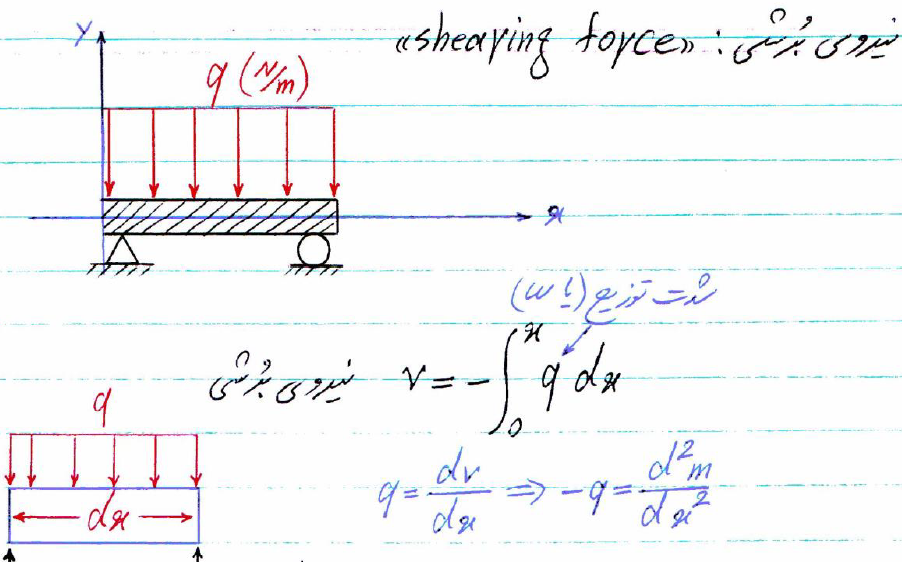 نیروی بُرشی : «shearing force»
Y
q (N/m)
x
شدت توزیع (یا ω)
نیروی بُرشی v = -∫₀ˣ q dx
q
q = dv/dx ⇒ -q = d²m/dx²
dx